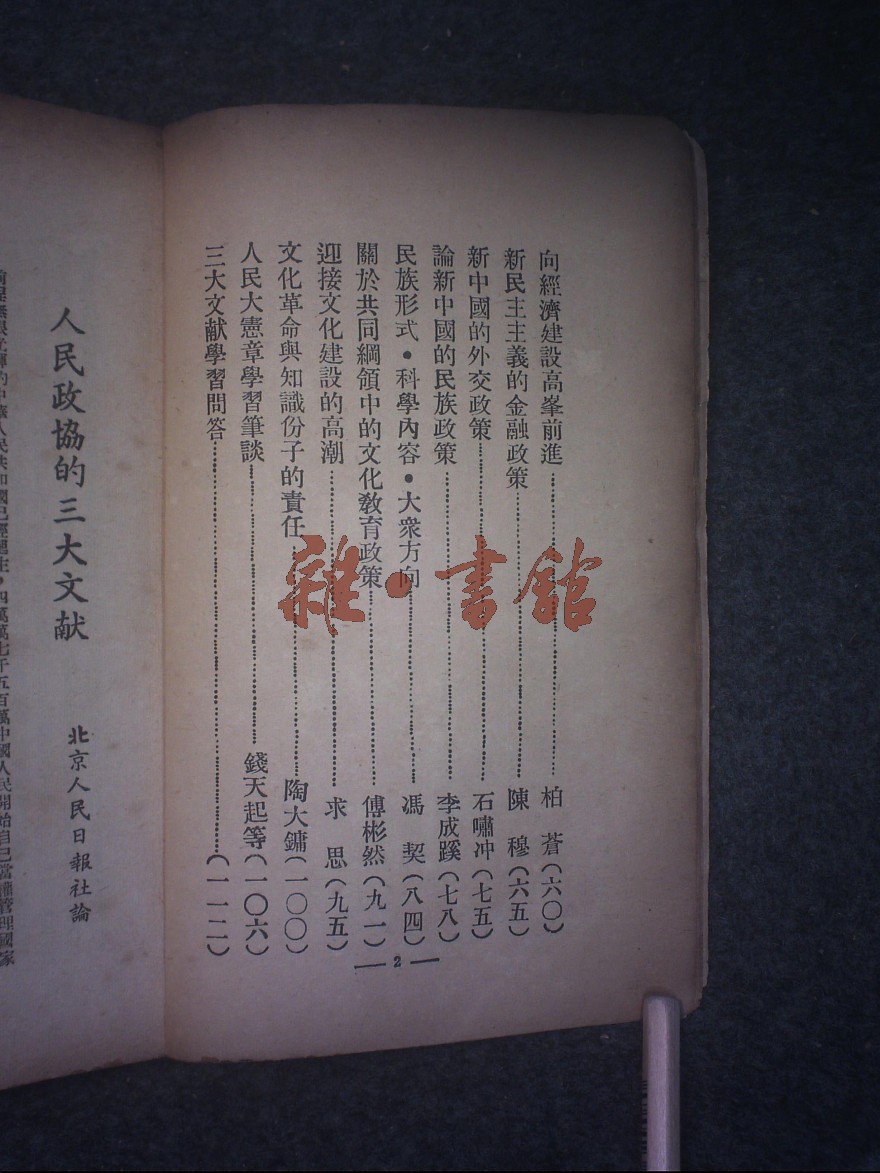 向經濟建設高峯前進…………柏 蒼(六〇)
新民主主義的金融政策…………陳 穆(六五)
新中國的外交政策…………石嘯冲(七五)
論新中國的民族政策…………李成蹊(七八)
民族形式・科學內容・大衆方向…………馮 契(八四)
關於共同綱領中的文化敎育政策…………傅彬然(九一)
迎接文化建設的高潮…………求 思(九五)
文化革命與知識份子的責任…………陶大鏞(一〇〇)
人民大憲章學習筆談…………錢天起等(一〇六)
三大文献學習問答…………(一一二)
— 2 —
雜・書館
人民政協的三大文献
北京人民日報社論
中華人民共和國已經誕生・四萬萬七千五百萬中國人民開始自己當權管理國家